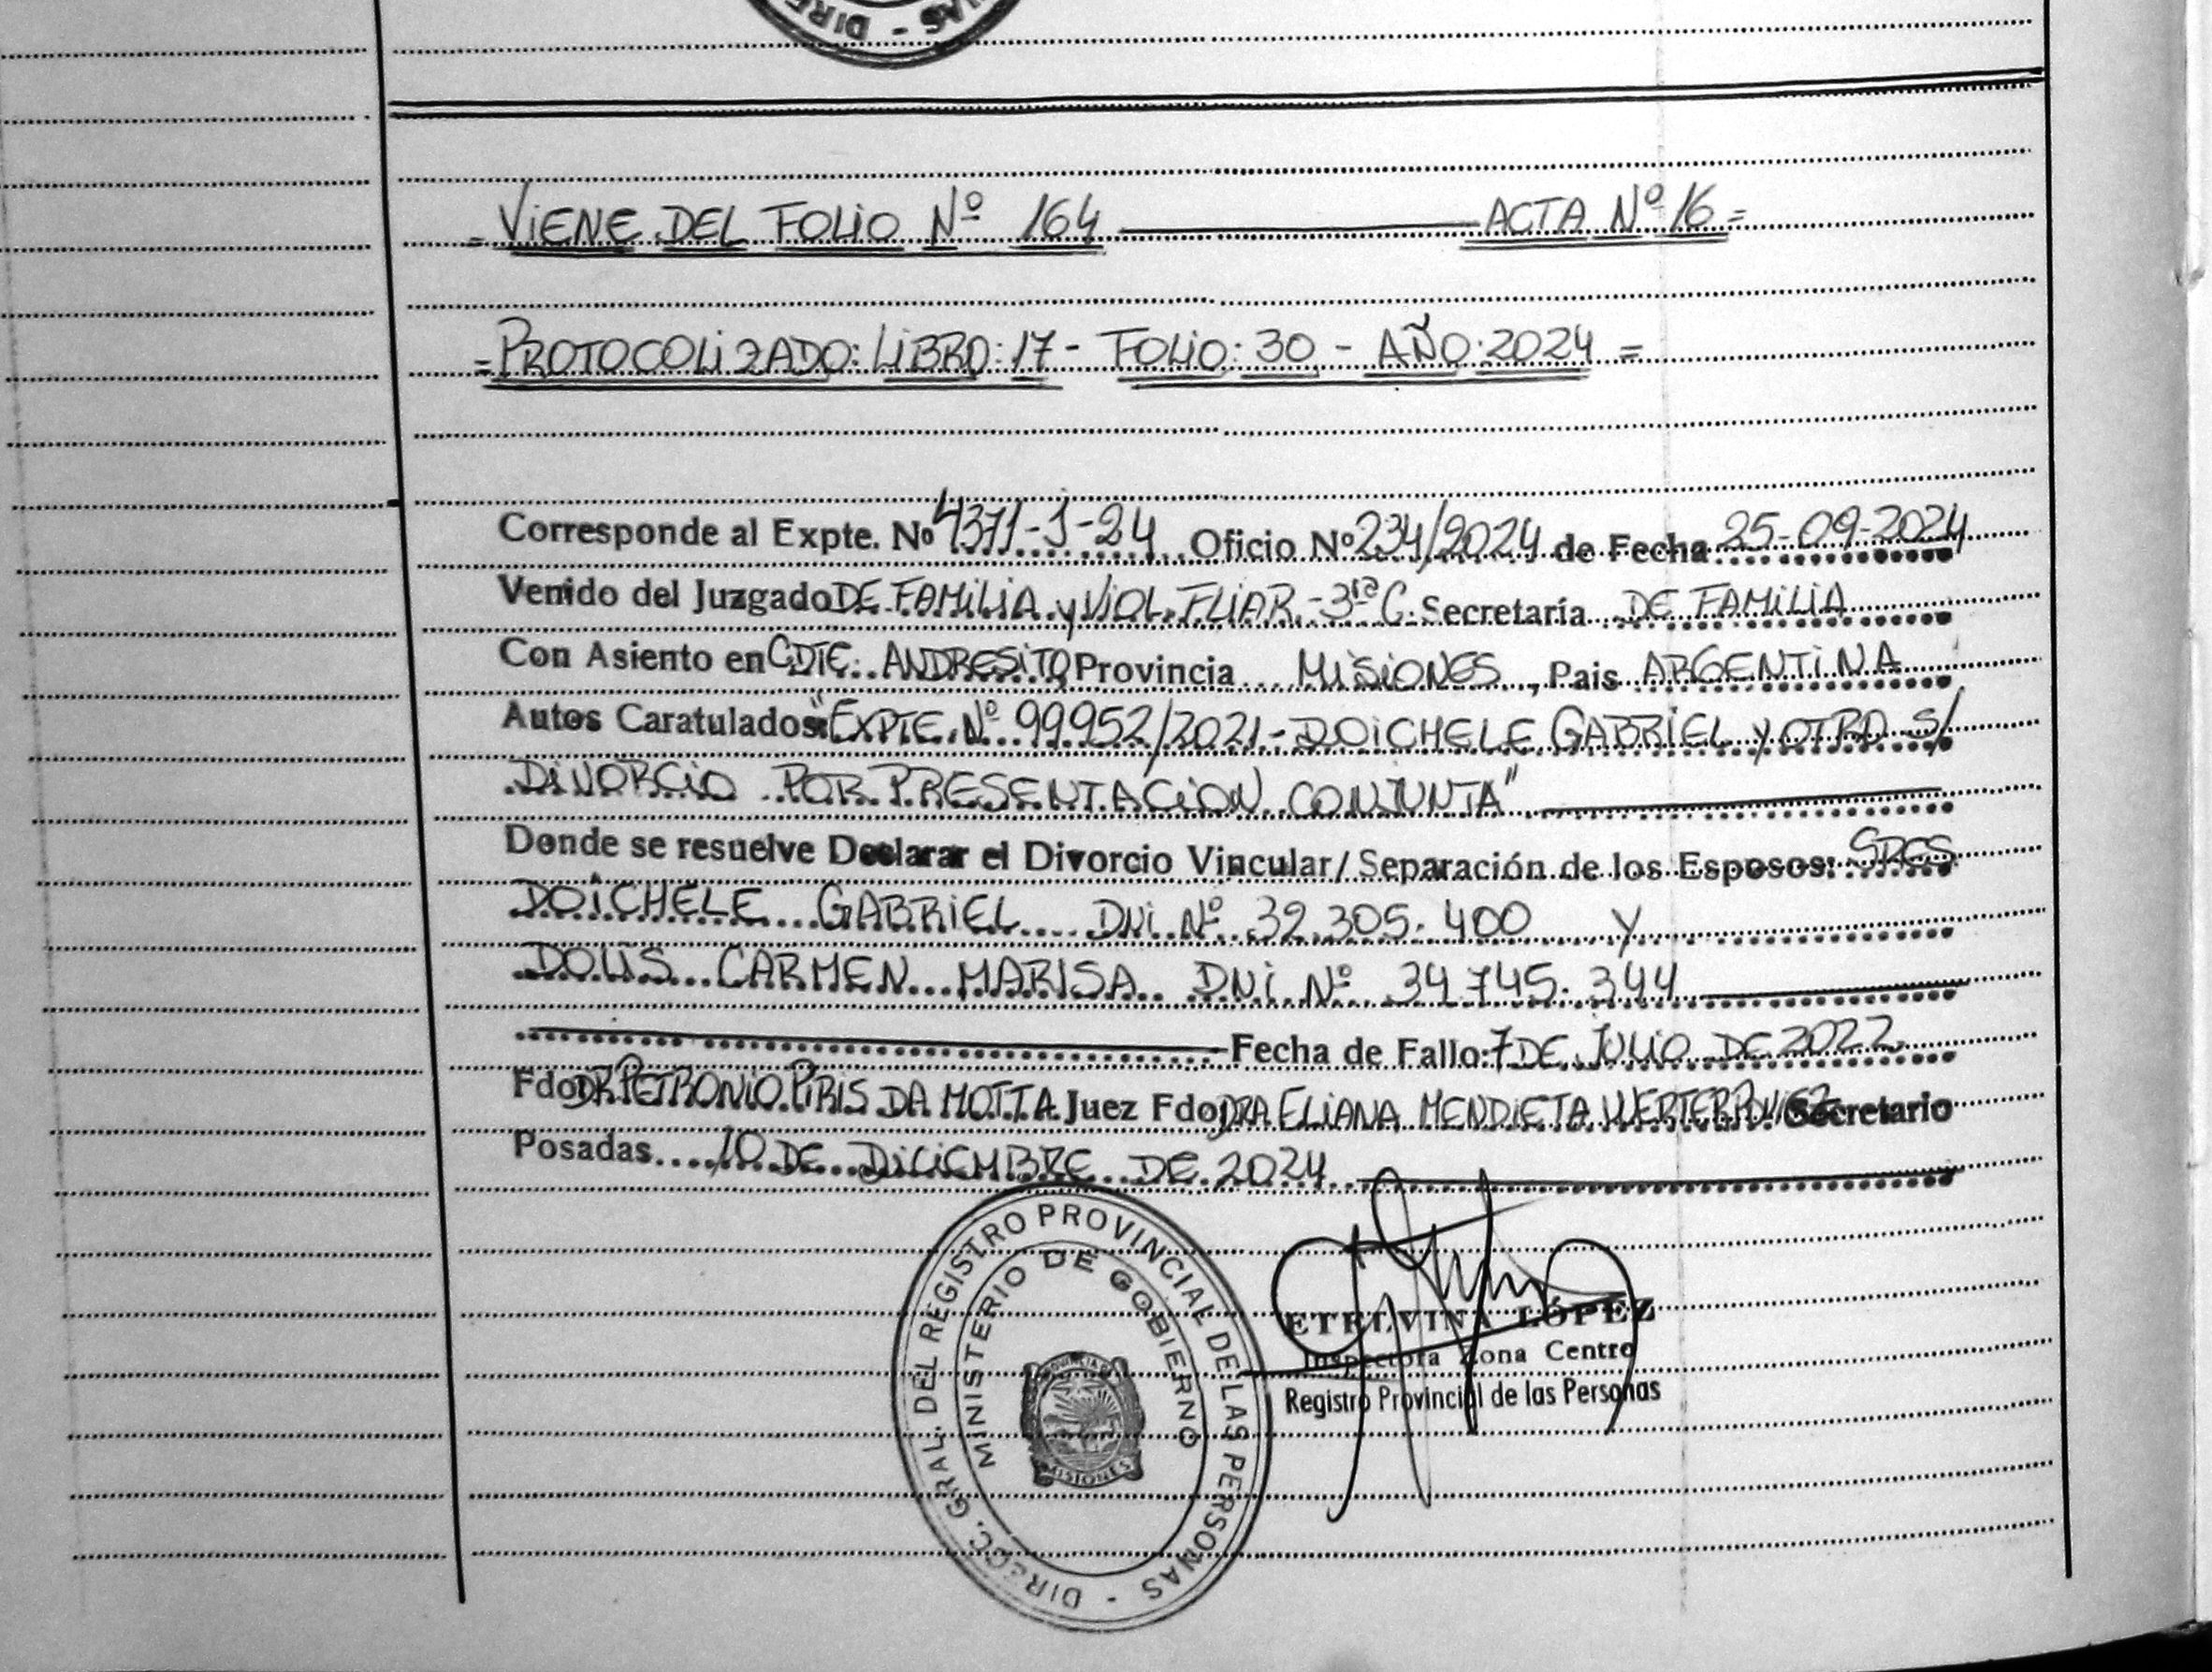 DIRE - AS
= VIENE DEL FOLIO Nº 164 ACTA Nº 16 =
= PROTOCOLIZADO: LIBRO: 17 - FOLIO: 30 - AÑO: 2024 =
Corresponde al Expte. Nº 4371-J-24 Oficio Nº 234/2024 de Fecha 25-09-2024
Venido del Juzgado DE FAMILIA y VIOL. FLIAR. - 3ra C. Secretaría DE FAMILIA
Con Asiento en CDTE. ANDRESITO Provincia MISIONES, Pais ARGENTINA
Autos Caratulados: "EXPTE. Nº 99952/2021 - DOICHELE GABRIEL y OTRO S/
DIVORCIO POR PRESENTACION CONJUNTA"
Donde se resuelve Declarar el Divorcio Vincular/Separación de los Esposos: SRES
DOICHELE GABRIEL DNI Nº 32.305.400 Y
CARMEN MARISA DNI Nº 34.745.344
Fecha de Fallo: 7 DE JULIO DE 2022
Fdo DR PETRONIO PIRIS DA MOTTA Juez Fdo DRA ELIANA MENDIETA Secretario
Posadas 10 DE DICIEMBRE DE 2024
DIRECC. GRAL. DEL REGISTRO PROVINCIAL DE LAS PERSONAS -
MINISTERIO DE GOBIERNO
MISIONES
ETELVINA LÓPEZ
Inspectora Zona Centro
Registro Provincial de las Personas